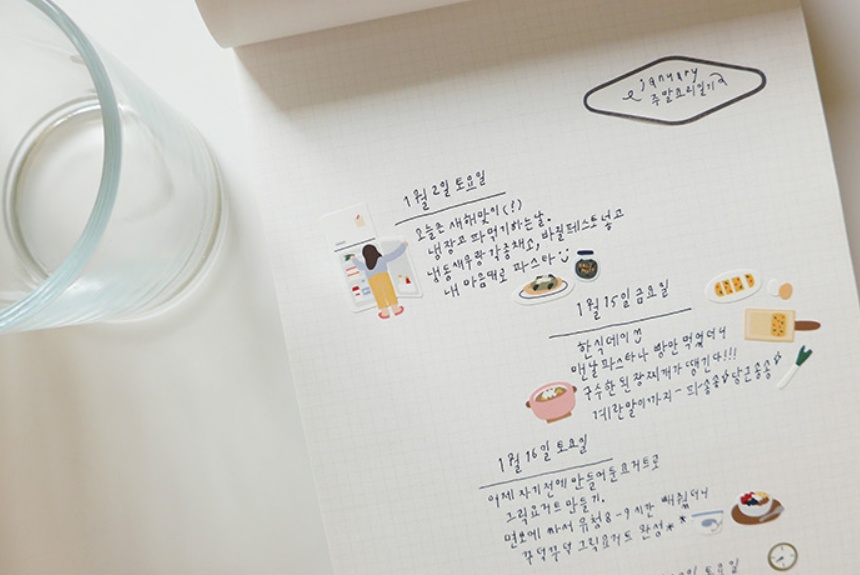 january
주말요리일기
1월 2일 토요일
오늘은 새해맞이(!)
냉장고 파먹기하는날.
냉동새우랑 각종채소, 바질페스토넣고
내 마음대로 파스타
1월 15일 금요일
한식데이
맨날 파스타나 빵만 먹었더니
구수한 된장찌개가 땡긴다!!!
계란말이까지~ 파송송 당근송송
1월 16일 토요일
어제 자기전에 만들어둔요거트로
그릭요거트만들기.
면보에 싸서 유청 8-9시간 빼줬더니
꾸덕꾸덕 그릭요거트 완성**
토요일